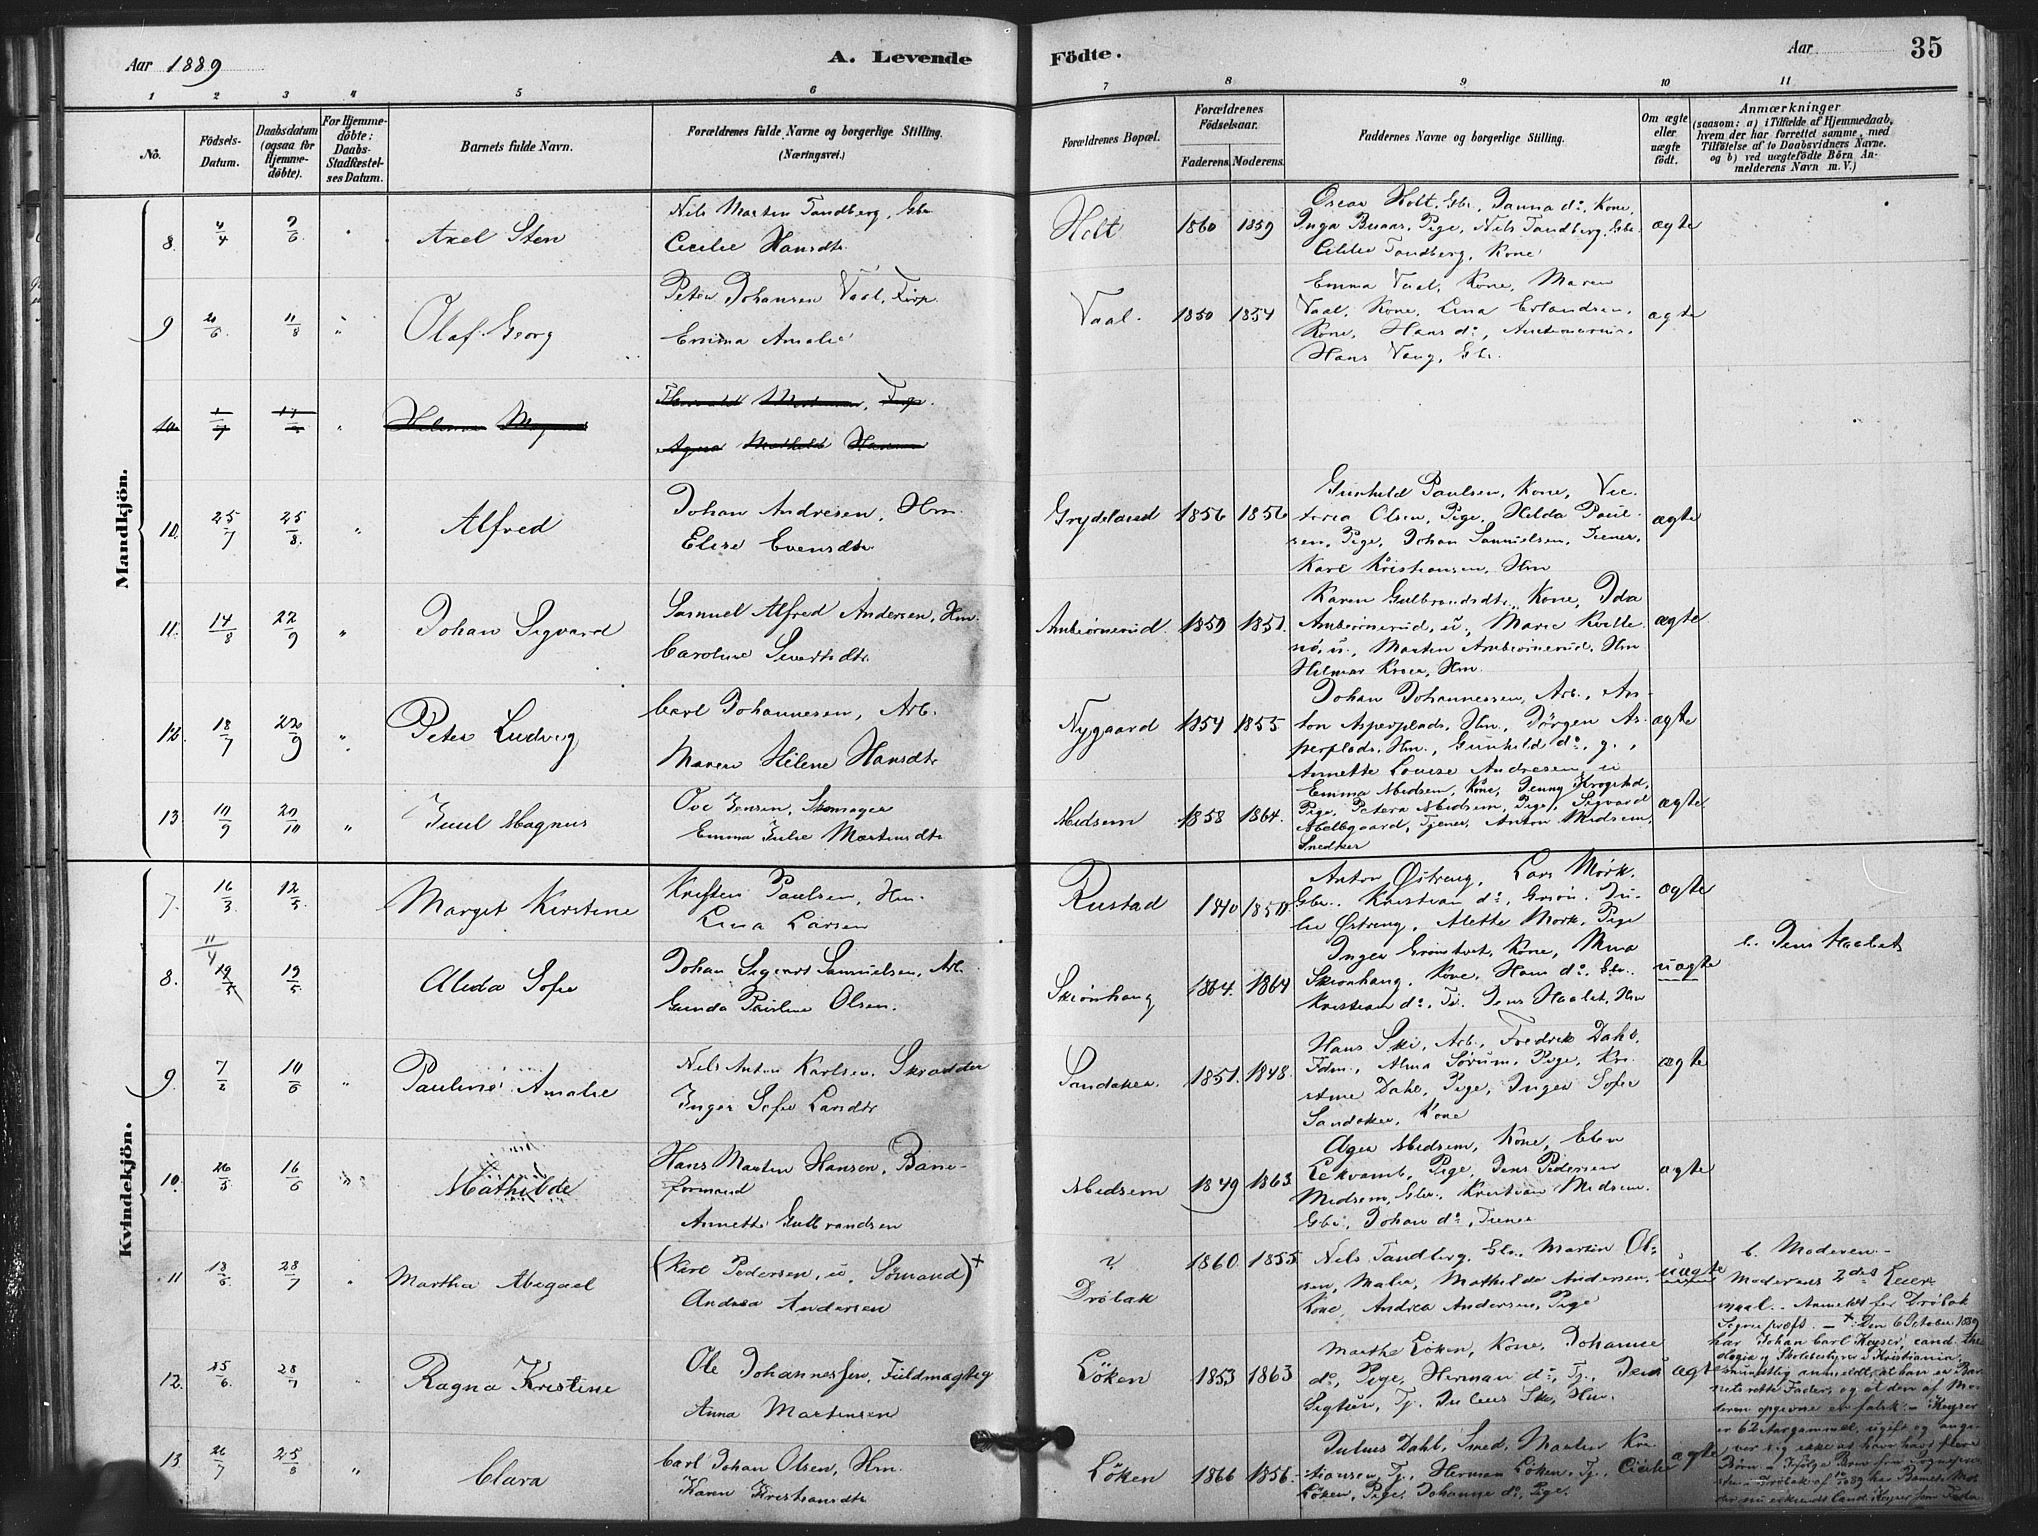 Aar 1889
A. Levende
Födte.
Aar
35
1 2 3 4 5 6 7 8 9 10 11
No.
Födsels-
Datum.
Daabsdatum
(ogsaa for
Hjemme-
döbte).
For Hjemme-
döbte:
Daabs-
Stadfæstel-
ses Datum.
Barnets fulde Navn.
Forældrenes fulde Navne og borgerlige Stilling.
(Næringsvei.)
Forældrenes Bopæl.
Forældrenes
Födselsaar.
Faderens.
Moderens.
Faddernes Navne og borgerlige Stilling.
Om ægte
eller
uægte
født.
Anmærkninger
(saasom: a) i Tilfælde af Hjemmedaab,
hvem der har forrettet samme, med
Tilföielse af to Daabsvidners Navne.
og b) ved uegtefödte Börn An-
melderens Navn m. V.)
Mandkjön.
8. 4/4 9/6 " Axel Sten
Nils Martin Tandberg, Gbr.
Cecilie Hansdtr
Holt 1860 1859
Oscar Holt, Gbr., Janna do, Kone,
Inga Buaas, Pige, Nils Tandberg, Gbr.
Cecilie Tandberg, Kone
ægte
9 20/6. 11/8 " Olaf Georg
Peter Johansen Vaal,
Emma Amalie
Vaal. 1850 1854
Emma Vaal, Kone, Maren
Vaal, Kone, Lina Erlandsen,
Kone, Hans do,
Hans Vaug, Gbr.
ægte
10. 25/7 25/8. " Alfred
Johan Andresen, Hm.
Elise Evensdtr.
Grydeland 1856 1856
Gunhild Paulsen, Kone, Vic-
toria Olsen, Pige, Hilda Paul-
sen, Pige, Johan Samuelsen, Tiener,
Karl Kristiansen, Hm
ægte
11. 14/8 22/9 " Johan Sigvard
Samuel Alfred Andersen, Hm.
Caroline Sivertsdtr.
Anbiørnerud. 1859 1851.
Karen Gulbrandsdtr., Kone, Ida
Anbiørnerud, u., Marie Kvelle-
nø, u., Martin Anbiørnerud, Hm
Hilmar Kroer, Hm.
ægte
12. 18/7 22/9 " Peter Ludvig
Carl Johannesen, Arb.
Maren Helene Hansdtr
Nygaard 1854 1855
Johan Johannessen, Arb., An-
ton Asperplads, Hm., Jørgen As-
perplads, Hm., Gunhild do, g.,
Annette Louise Andresen u
ægte
13 10/9 20/10 " Juul Magnus
Ove Jensen, Skomager
Emma Julie Martinsdtr
Midsem 1858 1864.
Emma Midsem, Kone, Jenny Krogstad,
Pige, Petera Midsem, Pige, Sigvard
Abelsgaard, Tjener, Anton Midsem,
Snedker
ægte
Kvindekjön.
7. 16/3 12/5 Marget Kirstine
Kristen Paulsen, Hm.
Lina Larsen
Rustad 1840 1850.
Anton Østreng, Lars Mørk,
Gbr. Kristian do, Ju-
lie Østreng, Alette Mørk, Pige
ægte
8. 11/4 19/5 Alida Sofie
Johan Sigvart Samuelsen, Arb.
Gunda Pauline Olsen.
Skiønhaug 1864. 1864
Inger Grøntvet, Kone, Mina
Skiønhaug, Kone, Hans do, Gbr.
Kristian do, Tj. Jens Haalet, Hm
uægte
b. Jens Haalet
9. 7/2 10/6 " Pauline Amalie
Nils Anton Karlsen, Skrædder
Inger Sofie Larsdtr
Sandaker. 1851. 1848.
Hans Ski, Arb., Fredrik Dahl,
Fdm., Alma Sørum, Pige, Kri-
stine Dahl, Pige, Inger Sofie
Sandaker, Kone
ægte
10. 26/5 16/6 " Mathilde
Hans Martin Hansen, Bane-
formand
Annette Gulbrandsen
Midsem 1849 1863.
Agea Midsem, Kone, Elen
Eekvamb, Pige, Jens Pedersen
Midsem, Gbr., Kristian Midsem.
Gbr., Johan do, Tiener
ægte
11 18/5 28/7 " Martha Abegael
(Karl Pedersen, u. Sømand)+
Andrea Andersen
Drøbak 1860 1855
Nils Tandberg, Gbr., Martin Ol-
sen, Maler, Mathilde Andersen,
Kone, Andrea Andersen, Pige
uægte
b. Moderen -
Moderens 2det Leier-
maal. - Anmeldt for Drøbak
Sognepræst. - + Den 6 October 1889
har Johan Carl Keyser, cand. the-
ologiæ og Skolebestyrer i Kristiania,
mundtlig anmeldt, at han er Bar-
nets rette Fader, og at den af Mo-
deren opgivne er falsk. - Keyser
er 62 Aar gammel, ugift og angi-
ver sig ikke at have havt flere
Børn.
12. 25/6. 28/7 " Ragna Kristine
Ole Johannessen, Fuldmægtig
Anna Martinsen
Löken 1853 1863
Marthe Löken, Kone, Johanne
do, Pige, Herman do, Tj.,
Sigtun, Tj. Julius Ski, Hm.
ægte
13 26/7 25/8 " Clara
Carl Johan Olsen, Hm.
Karen Kristiansdtr
Löken 1866 1856.
Julius Dahl, Smed, Martin Kri-
stiansen, Tj., Herman Löken, Tj., Cecilie
Löken, Pige. Johanne do, Pige.
ægte